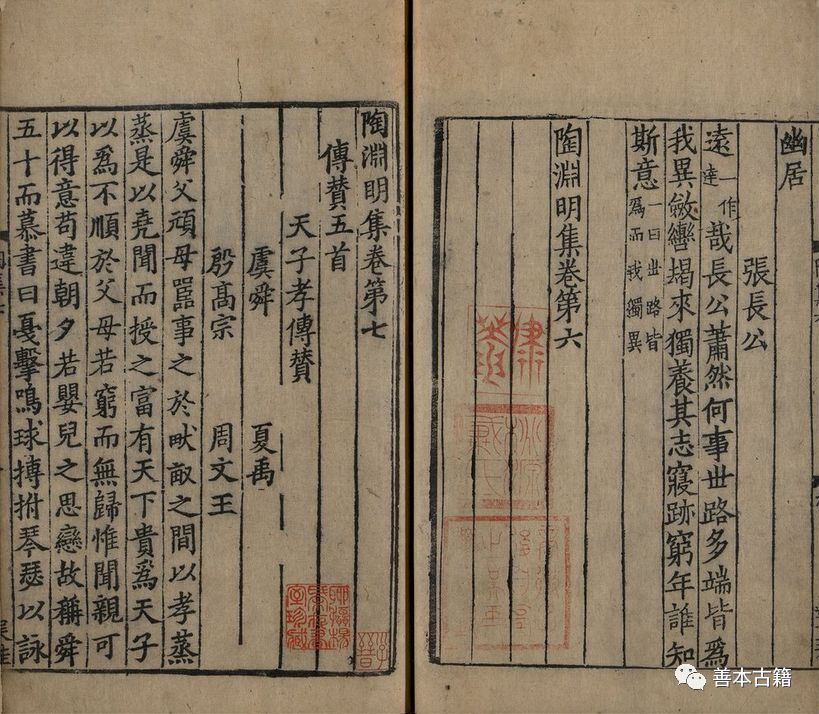 幽居
張長公
遠一作達哉長公蕭然何事世路多端皆為
我異斂轡朅來獨養其志寢跡窮年誰知
斯意一曰世路皆為而我獨異
陶淵明集卷第六
陶淵明集卷第七
傳賛五首
天子孝傳賛
虞舜 夏禹
殷高宗 周文王
虞舜父頑母嚚事之於畎畝之間以孝蒸
蒸是以堯聞而授之富有天下貴為天子
以為不順於父母若窮而無歸惟聞親可
以得意苟違朝夕若嬰兒之思戀故稱舜
五十而慕書曰戛擊鳴球搏拊琴瑟以詠
善本古籍